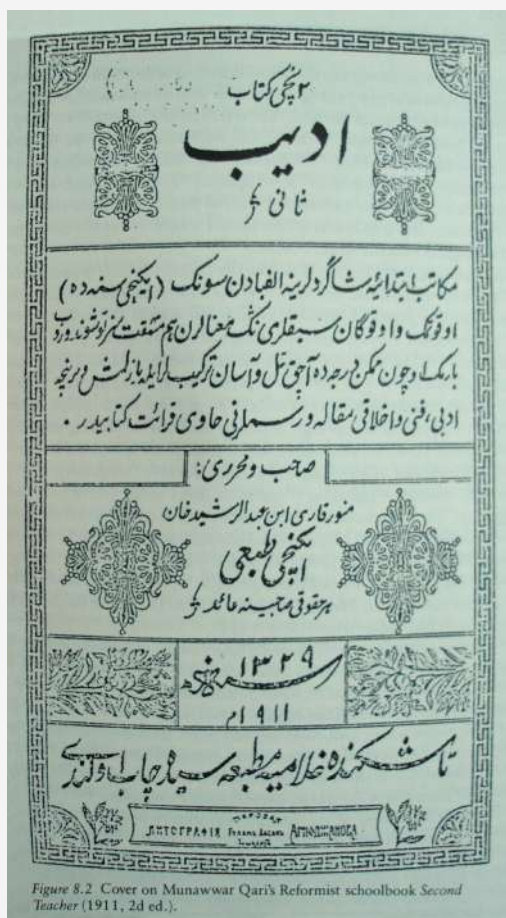 ٢ نچی کتاب
ادیب
ثانی
مکاتب ابتدائیه شاگردلرینه الفبادن سونک (ایکنچی سنه ده)
اوقوتمک و اوقوگان سبقلری نک معنالرن هم مشقت سز توشوندوروب
بارمک اوچون ممکن درجه ده آچق تل و آسان ترکیب لر ایله یازلمش و برنچه
ادبی، فنی و اخلاقی مقاله و رسملرنی حاوی قرائت کتابیدر.
صاحب و محرری:
منور قاری ابن عبدالرشید خان
ایکنچی طبعی
هر حقوقی صاحبینه عائددر
١٣٢٩ سنه هجریه
١٩١١م
تاشکنده غلامیه مطبعه سیده چاپ اولندی
ЛИТОГРАФІЯ
Figure 8.2 Cover on Munawwar Qari's Reformist schoolbook Second
Teacher (1911, 2d ed.).